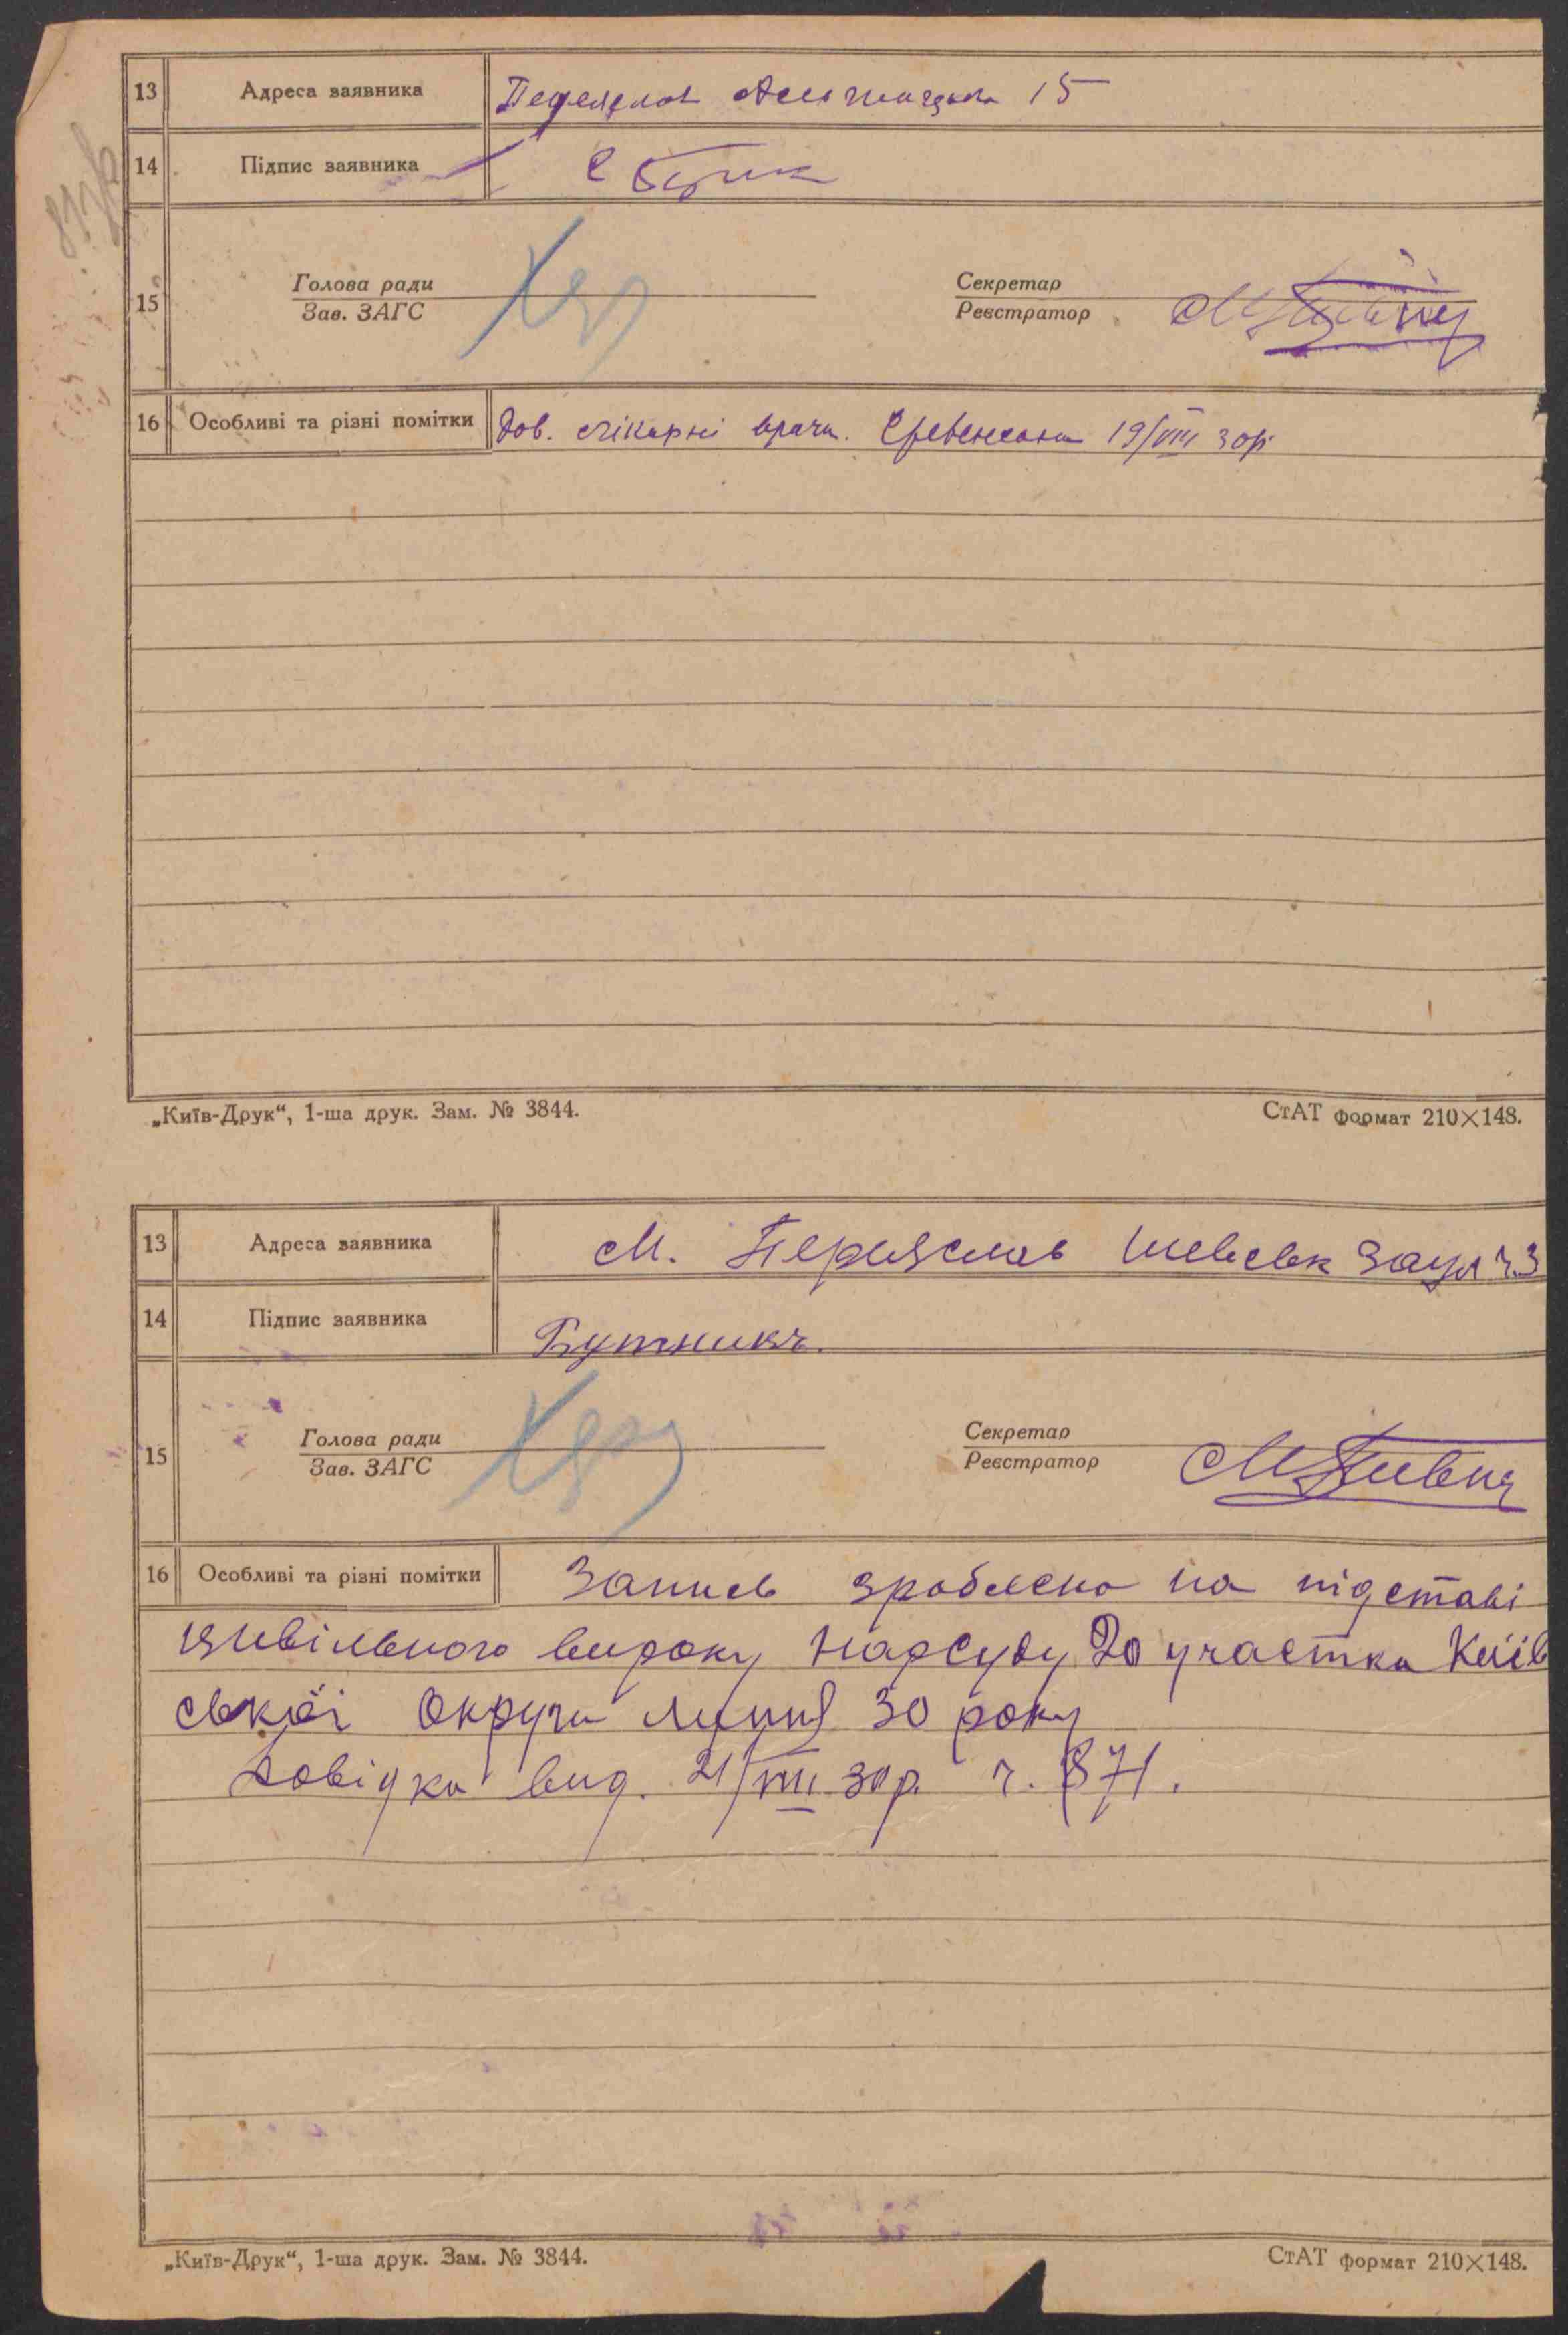 13 Адреса заявника Переяслов 15
14 Підпис заявника
15 Голова ради
Зав. ЗАГС
Секретар
Реєстратор
16 Особливі та різні помітки Дов. лікарні врача 19/VIII 30р
„Київ-Друк“, 1-ша друк. Зам. № 3844. СтАТ формат 210×148.
13 Адреса заявника М. Переяслов заул ч3
14 Підпис заявника Бутникъ.
15 Голова ради
Зав. ЗАГС
Секретар
Реєстратор
16 Особливі та різні помітки Запись зроблено на підставі
цивільного вироку Нарсуду 20 участка Київ
ської Округи липня 30 року
Довідка вид. 21/VIII 30р. ч. 871.
„Київ-Друк“, 1-ша друк. Зам. № 3844. СтАТ формат 210×148.